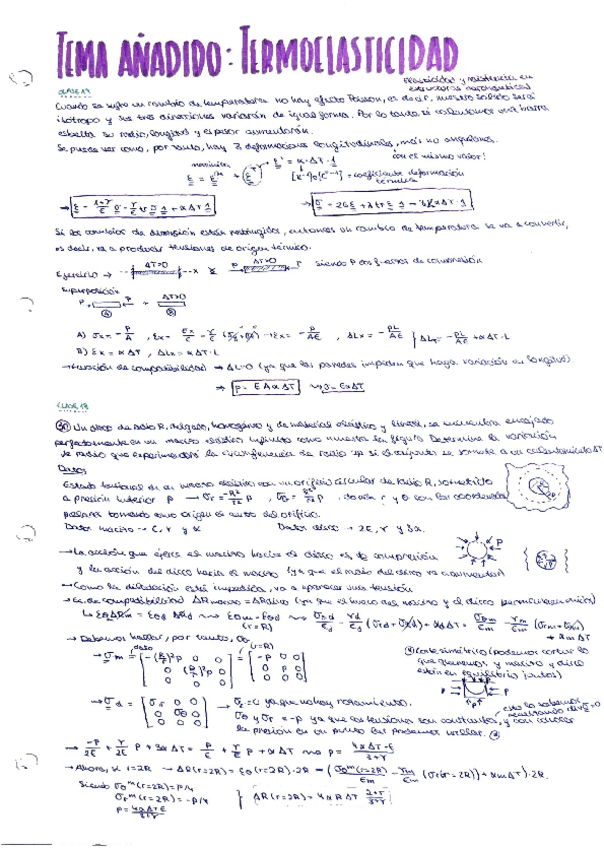 TEMA AÑADIDO: TERMOELASTICIDAD
Elasticidad y resistencia en
estructuras aeronáuticas
CLASE 17
Cuando se sufre un cambio de temperatura no hay efecto Poisson, es decir, nuestro sólido será
isótropo y sus tres dimensiones variarán de igual forma. Por lo tanto si calentamos una barra
esbelta su radio, longitud y espesor aumentarán.
Se puede ver como, por tanto, hay 3 deformaciones longitudinales, más no angulares.
con el mismo valor!
ε = ε^m + ε^T → ε^T = α·ΔT·1
coeficiente deformación
térmica
Si los cambios de dimensión están restringidos, entonces un cambio de temperatura se va a convertir,
es decir, va a producir tensiones de origen térmico.
Ejercicio → ΔT>0
siendo P las fuerzas de compresión
Superposición
A) σx = -P/A , εx = σx/E - γ/E (σy+σz) → εx = -P/AE , ΔLx = -PL/AE
ΔLx = -PL/AE + αΔT·L
B) εx = αΔT , ΔLx = αΔT·L
→ Ecuación de compatibilidad → ΔL=0 (ya que las paredes impiden que haya variación en longitud)
→ P = EAαΔT → σ = EαΔT
CLASE 18
Un disco de radio R, delgado, homogéneo y de material elástico y lineal, se encuentra encajado
perfectamente en un macizo elástico infinito como muestra la figura. Determina la variación
de radio que experimentará la circunferencia de radio 2R si el conjunto se somete a un calentamiento ΔT
Datos
Estado tensional en un macizo elástico con un orificio circular de radio R, sometido
a presión interior P → σr = -R²/r² P , σθ = R²/r² P , donde r y θ son las coordenadas
polares tomando como origen el centro del orificio.
Datos macizo → E, γ y α
Datos disco → 2E, γ y 3α.
→ La acción que ejerce el macizo hacia el disco es de compresión
y la acción del disco hacia el macizo (ya que el radio del disco va a aumentar)
→ Como la dilatación está impedida, va a aparecer una tensión
→ Ec. de compatibilidad → ΔRmacizo = ΔRdisco (ya que el hueco del macizo y el disco permanecen unidos)
→ Debemos hallar, por tanto, σθ
dato
(r=R)
Corte simétrico (podemos cortar lo
que queramos y macizo y disco
están en equilibrio juntos)
→ σz=0 ya que no hay rozamiento.
σθ y σr = -P ya que las tensiones son constantes, y con conocer
la presión en un punto las podemos hallar.
esto lo sabemos
→ -P/2E + γ/2E P + 3αΔT = P/E + γ/E P + αΔT → P = 4αΔT·E/3+γ
→ Ahora, si r=2R → ΔR(r=2R) = εθ(r=2R)·2R = (σθ^m(r=2R)/Em - γm/Em (σr(r=2R)) + αmΔT)·2R.
Siendo σθ^m(r=2R) = P/4
σr^m(r=2R) = -P/4
P = 4αΔTE/3+γ
ΔR(r=2R) = 4αRΔT 2+γ/3+γ